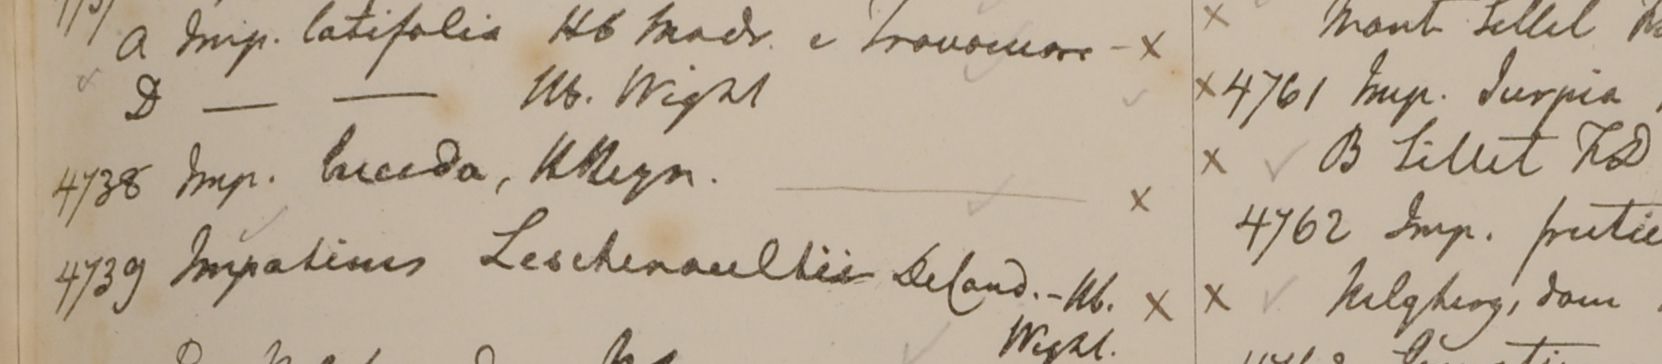 a Imp. latifolia Hb Madr. e Travancore - x
D — — Hb. Wight
4738 Imp. lucida, HHeyn. x
4739 Impatiens Leschenaultii DeCand. - Hb. x
Wight.
x Mont Sillet
x 4761 Imp. Turpia
x B Sillet FD
4762 Imp. frutic
x Nilgherry, dom